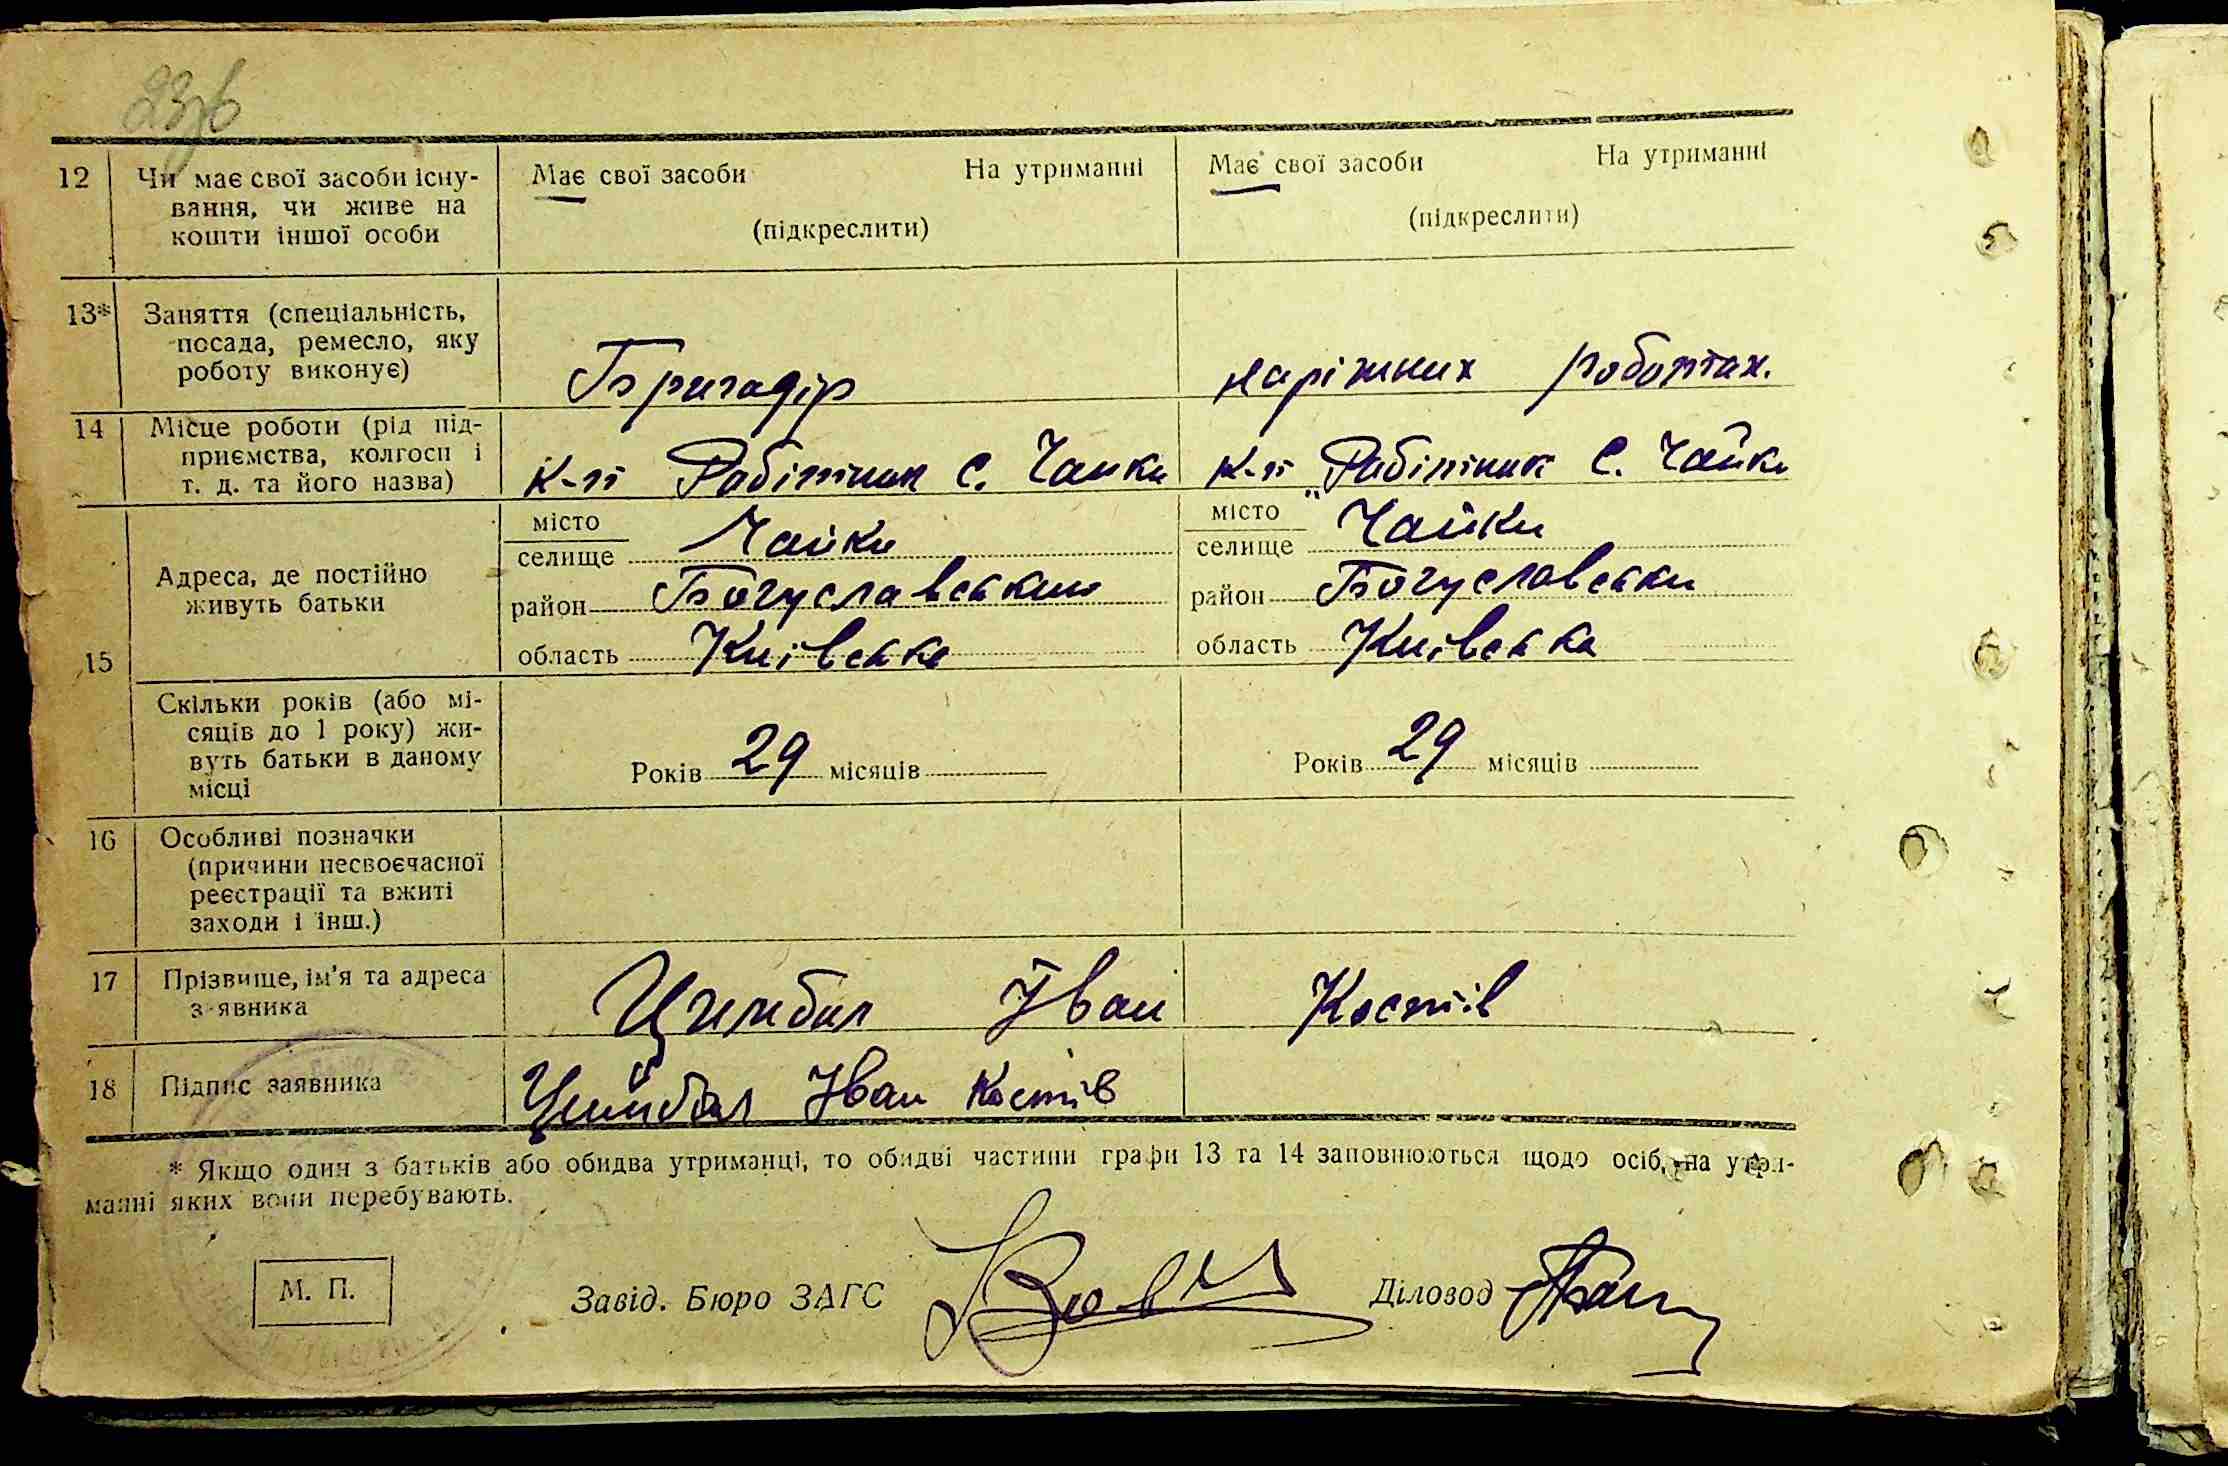 12 Чи має свої засоби існу- Має свої засоби На утриманні Має свої засоби На утриманні
вання, чи живе на
кошти іншої особи (підкреслити) (підкреслити)
13* Заняття (спеціальність,
посада, ремесло, яку
роботу виконує) Бригадір наріжних роботах.
14 Місце роботи (рід під-
приємства, колгосп і
т. д. та його назва) К-п Робітник с. Чайки К-п „Робітник с. Чайки
місто місто
селище Чайки селище Чайки
Адреса, де постійно
живуть батьки
район Богуславський район Богуславськи
15 область Київська область Київська
Скільки років (або мі-
сяців до 1 року) жи-
вуть батьки в даному Років 29 місяців Років 29 місяців
місці
16 Особливі позначки
(причини несвоєчасної
реєстрації та вжиті
заходи і інш.)
17 Прізвище, ім'я та адреса
з'явника Цимбал Іван Костів
18 Підпис заявника Цимбал Іван Костів
* Якщо один з батьків або обидва утриманці, то обидві частини графи 13 та 14 заповнюються щодо осіб, на утри-
манні яких вони перебувають.
М. П. Завід. Бюро ЗАГС Діловод